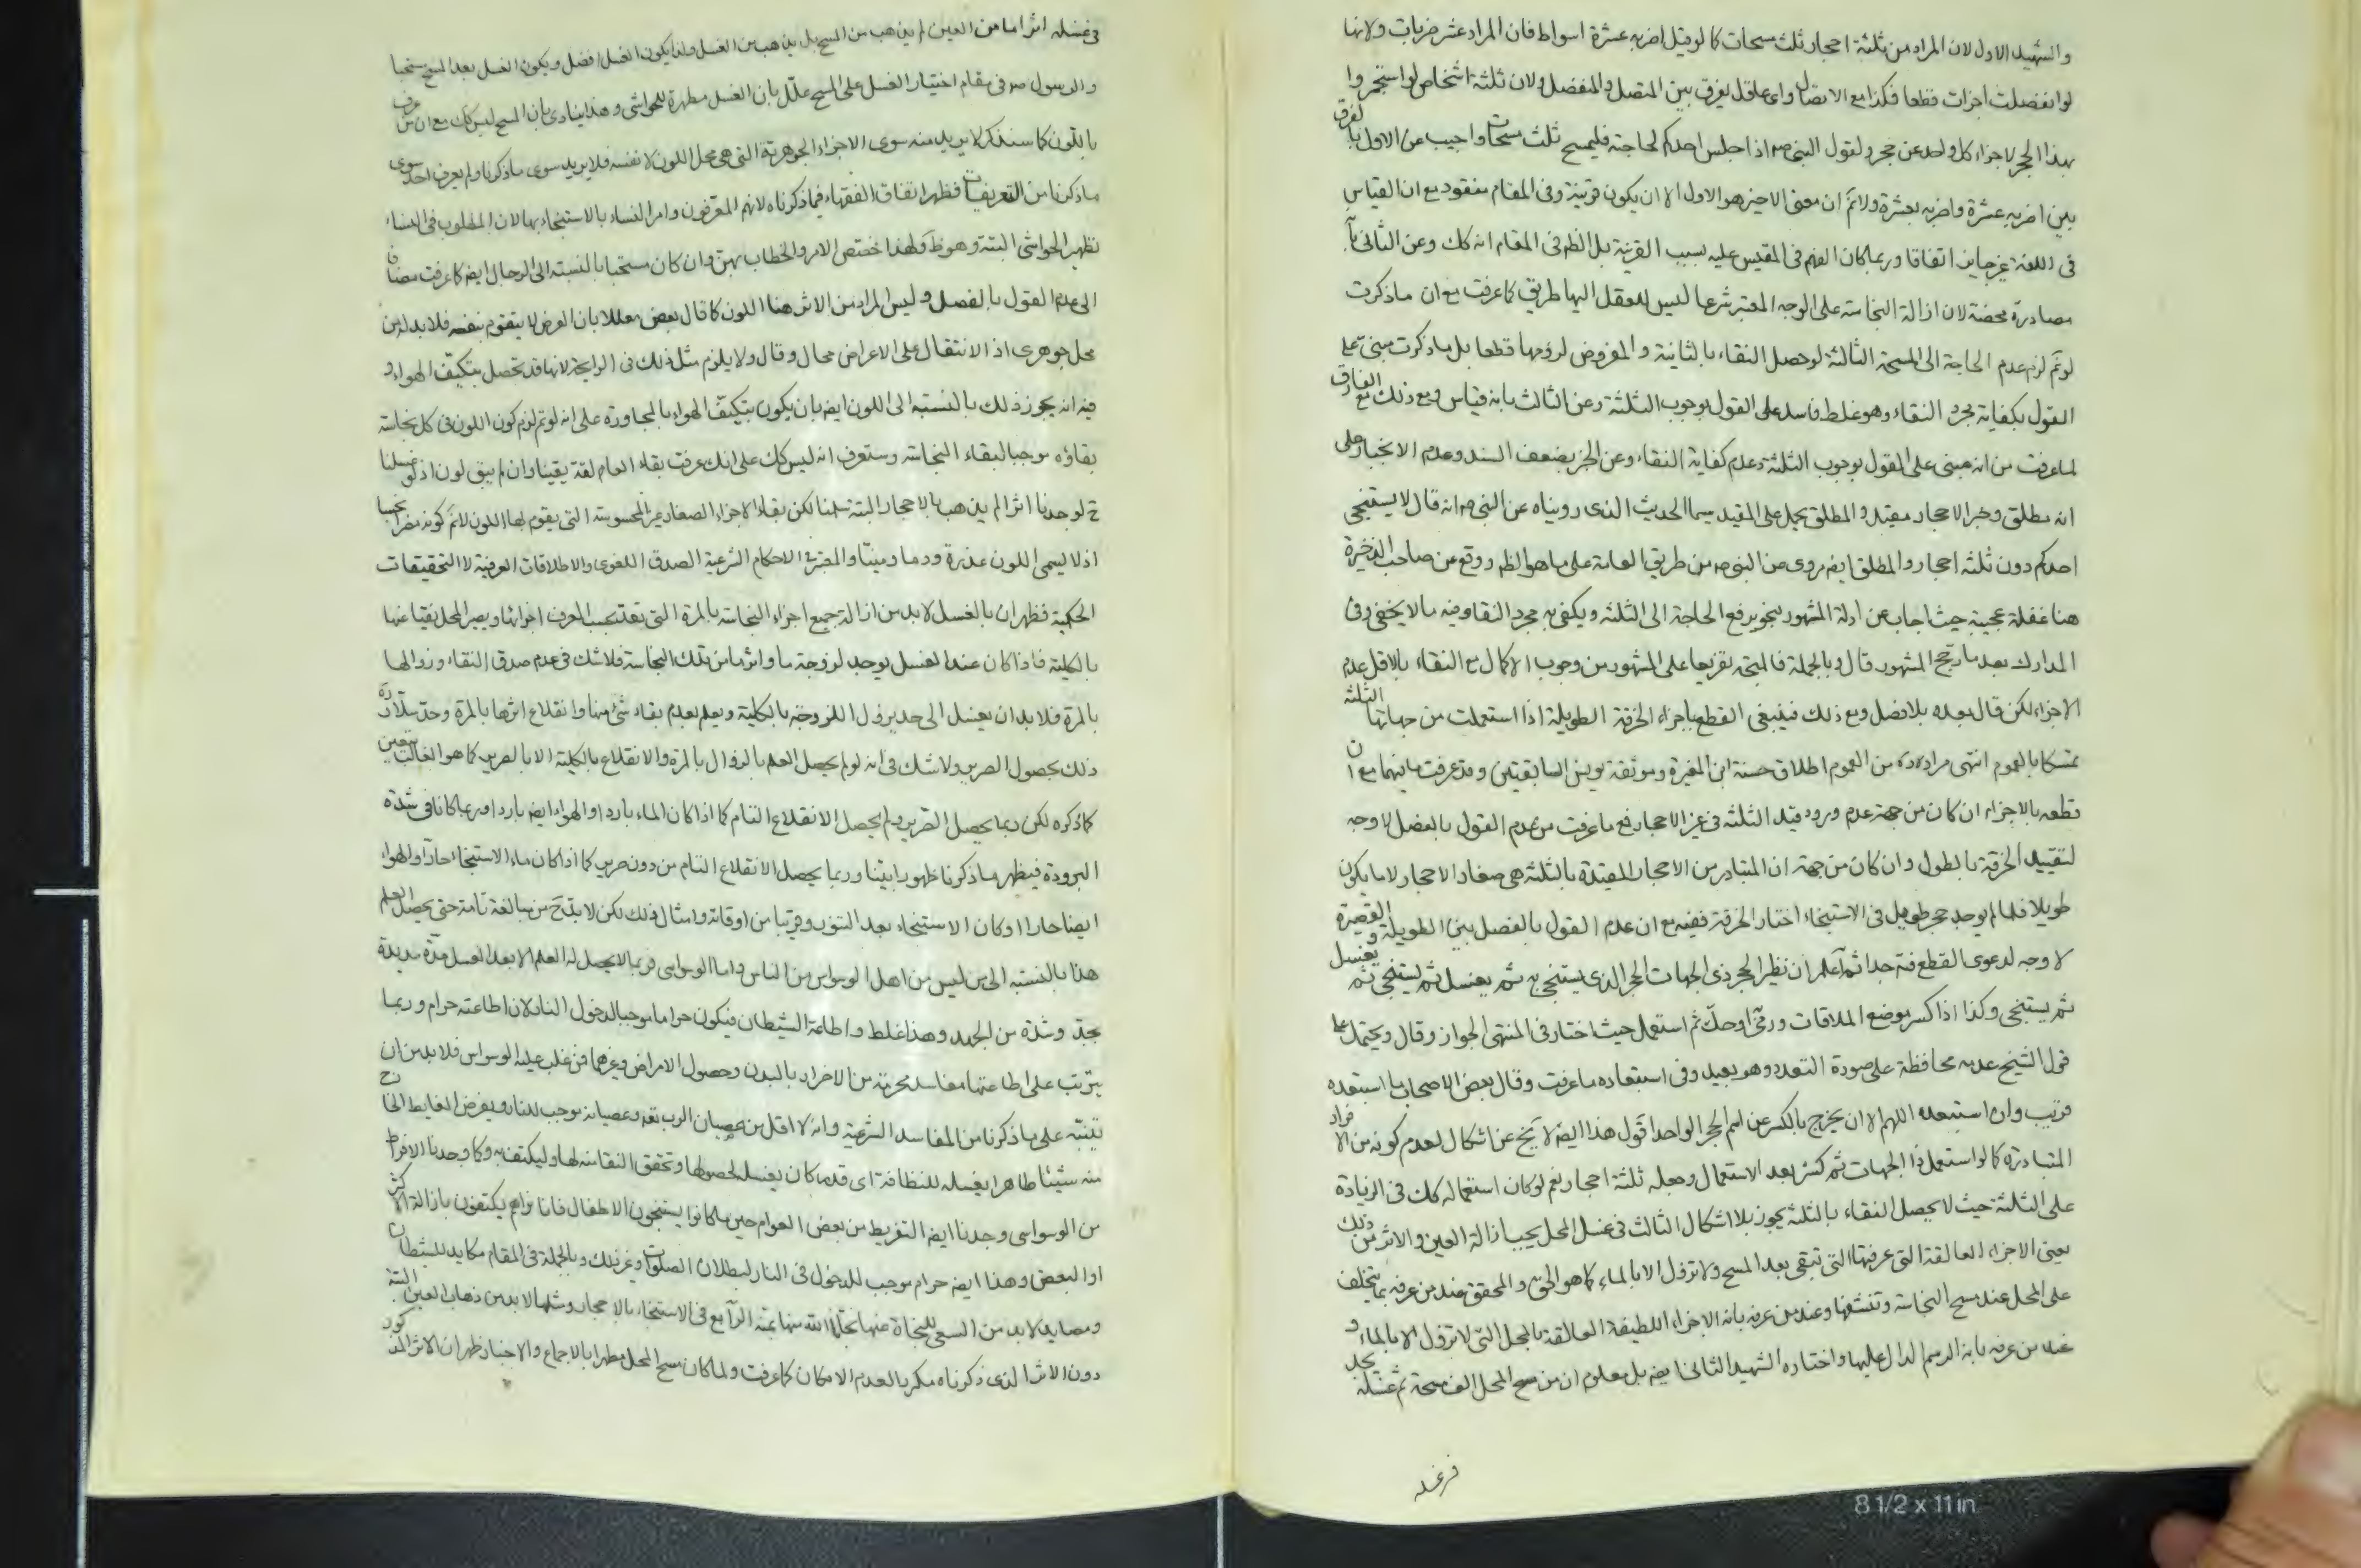 والشهيد الاول لان المراد من ثلثة احجار ثلث مسحات كما لو قيل اضربه عشرة اسواط فان المراد عشر ضربات ولانها
لو انفصلت اجزات قطعا فكذا مع الاتصال واى عاقل يفرق بين المتصل والمنفصل ولان ثلثة اشخاص لو استجمروا
بهذا الحجر لاجزاء كل واحد عن حجر ولقول النبى ص اذا جلس احدكم لحاجة فليمسح ثلث مسحات واجيب عن الاول بالفرق
بين اضربه عشرة واضربه بعشرة ولانم ان معنى الاخير هو الاول الا ان يكون قرينة وفى المقام مفقود مع ان القياس
فى اللغة غير جايز اتفاقا وربما كان الفهم فى المقيس عليه بسبب القرينة بل الظم فى المقام انه كك وعن الثانى بانه
مصادرة محضة لان ازالة النجاسة على الوجه المعتبر شرعا ليس للعقل اليها طريق كما عرفت مع ان ماذكرت
لو تم لزم عدم الحاجة الى المسحة الثالثة لو حصل النقاء بالثانية والمفروض لزومها قطعا بل ماذكرت مبنى على
القول بكفاية مجرد النقاء وهو غلط فاسد على القول بوجوب الثلثة وعن الثالث بانه قياس ومع ذلك مع الفارق
لما عرفت من انه مبنى على القول بوجوب الثلثة وعدم كفاية النقاء وعن الخبر بضعف السند وعدم الانجبار وعلى
انه مطلق وخبر الاحجار مقيد والمطلق يحمل على المقيد سيما الحديث الذى رويناه عن النبى ص انه قال لا يستنجى
احدكم دون ثلثه احجار والمطلق ايضه مروى عن النبى ص من طريق العامة على ما هو الظم ووقع من صاحب الذخيرة
هنا غفلة عجيبة حيث اجاب عن ادلة المشهور بتجويز رفع الحاجة الى الثلثة ويكفى به مجرد النقا وفيه مالا يخفى وفى
المدارك بعد ما رجح المشهور قال وبالجملة فالمتجه تفريعا على المشهور من وجوب الاكمال مع النقاء بالاقل عدم
الاجزاء لكن قال بعده بلا فصل ومع ذلك فينبغى القطع باجزاء الخرقة الطويلة اذا استعملت من جهاتها الثلثة
تمسكا بالعموم انتهى مراده ره من العموم اطلاق حسنة ابن المغيرة وموثقة يونس السابقتين وقد عرفت مافيهما مع ان
قطعه بالاجزاء ان كان من جهة عدم ورود قيد الثلثه فى غير الاحجار فمع ما عرفت من عدم القول بالفصل لا وجه
لتقييد الخرقة بالطول وان كان من جهة ان المتبادر من الاحجار المقيدة بالثلثة هى صغار الاحجار لا ما يكون
طويلا فلما لم يوجد حجر طويل فى الاستنجاء اختار الخرقة ففيه مع ان عدم القول بالفصل بين الطويلة والقصيرة
لا وجه لدعوى القطع فتة جدا ثم اعلم ان نظير الحجر ذى الجهات الحجر الذى يستنجى به ثم يغسل ثم يستنجى ثم يغسل
ثم يستنجى وكذا اذا كسر موضع الملاقات ورقى او حك ثم استعمل حيث اختار فى المنتهى الجواز وقال ويحتمل على
قول الشيخ عدمه محافظة على صورة التعدد وهو بعيد وفى استبعاده ما عرفت وقال بعض الاصحاب ما استبعده
قريب وان استبعده اللهم الا ان يخرج بالكسر عن اسم الحجر الواحد اقول هذا ايضه لا يخ عن اشكال لعدم كونه من الافراد
المتبادرة كما لو استعمل ذا الجهات ثم كسر بعد الاستعمال وجعله ثلثة احجار نعم لو كان استعماله كك فى الزيادة
على الثلثة حيث لا يحصل النقاء بالثلثة يجوز بلا اشكال الثالث فى غسل المحل يجب ازالة العين والاثر من ذلك
يعنى الاجزاء العالقة التى عرفتها التى تبقى بعد المسح ولا تزول الا بالماء كما هو الحق والمحقق عند من عرفه بما يتخلف
على المحل عند مسح النجاسة وتنشفها وعند من عرفه بانه الاجزاء اللطيفة العالقة بالمحل التى لا تزول الا بالماء و
عند من عرفه بانه الرسم الدال عليها واختاره الشهيد الثانى ايضه بل معلوم ان من مسح المحل الف مسحة ثم غسله يجد
فى غسله اثرا ما من العين لم يذهب من المسح بل يذهب من الغسل ولذا يكون الغسل افضل ويكون الغسل بعد المسح مستحبا
والرسول ص فى مقام اختيار الغسل على المسح علل بان الغسل مطهرة للحواشى وهذا ينادى بان المسح ليس كك مع ان من عرف
باللون كما سنذكر لا يريد منه سوى الاجزاء الجوهرية التى هى محل اللون لا نفسه فلا يريد سوى ماذكرنا ولم يعرف احد سوى
ماذكرنا من التعريفات فظهر اتفاق الفقهاء فيما ذكرناه لانهم المعرفون وامر النساء بالاستنجاء بها لان المطلوب فى النساء
تطهير الحواشى البتة وهو ظ ولهذا اختص الامر والخطاب بهن وان كان مستحبا بالنسبة الى الرجال ايضه كما عرفت مضافا
الى عدم القول بالفصل وليس المراد من الاثر هنا اللون كما قال بعض معللا بان العرض لا يتقوم بنفسه فلا بد له من
محل جوهرى اذ الانتقال على الاعراض محال وقال ولا يلزم مثل ذلك فى الرايحة لانها قد تحصل بتكيف الهواء و
فيه انه يجوز ذلك بالنسبة الى اللون ايضه بان يكون بتكيف الهواء بالمجاورة على انه لو تم لزم كون اللون فى كل نجاسة
بقاؤه موجبا لبقاء النجاسة وستعرف انه ليس كك على انك عرفت بقاء العام لقة يقينا وان لم يبق لون اذ لو غسلنا
ح لوجدنا اثرا لم يذهب بالاحجار البتة سلمنا لكن بقاء الاجزاء الصغار غير المحسوسة التى يقوم بها اللون لانم كونه مضرا نجسا
اذ لا يسمى اللون عذرة ودما وميتا والمعتبر فى الاحكام الشرعية الصدق اللغوى والاطلاقات العرفية لا التحقيقات
الحكمية فظهر ان بالغسل لا بد من ازالة جميع اجزاء النجاسة بالمرة التى تعد بحسب العرف اجزائها ويصير المحل نقيا عنها
بالكلية فاذا كان عند الغسل يوجد لزوجة ما واثر ما من تلك النجاسة فلا شك فى عدم صدق النقاء وزوالها
بالمرة فلا بد ان يغسل الى حد يزول اللزوجة بالكلية ويعلم بعدم بقاء شئ منها وانقلاع اثرها بالمرة وحد سلار ره
ذلك بحصول الصرير ولا شك فى انه لو لم يحصل العلم بالزوال بالمرة والانقلاع بالكلية الا بالصرير كما هو الغالب يتعين
كما ذكره لكن ربما يحصل الصرير ولم يحصل الانقلاع التام كما اذا كان الماء باردا والهواء ايضه باردا وربما كانا فى شدة
البرودة فيظهر ماذكرنا ظهورا بينا وربما يحصل الانقلاع التام من دون صرير كما اذا كان ماء الاستنجاء حارا والهواء
ايضا حارا او كان الاستنجاء بعد التنور وقريبا من اوقاته وامثال ذلك لكن لابد ح من مبالغة تامة حتى يحصل العلم
هذا بالنسبه الى من ليس من اهل الوسواس من الناس واما الوسواسى فربما لا يحصل له العلم الا بعد الغسل مدة مديدة
بجد وشدة من الجهد وهذا غلط واطاعة الشيطان فيكون حراما موجبا لدخول النار لان اطاعته حرام وربما
يترتب على اطاعتها مفاسد مجربة من الاضرار بالبدن وحصول الامراض وغيرها فمن غلب عليه الوسواس فلا بد من ان
يتنبه على ماذكرنا من المفاسد الشرعية وانه لا اقل من عصيان الرب تعه وعصيانه موجب للنار ويفرض الغايط الخارج
منه شيئا طاهرا يغسله للنظافة اى قدر ما كان يغسله لحصولها وتحقق النقا منه لها وليكتف به وكما وجدنا الافراط
من الوسواسى وجدنا ايضه التفريط من بعض العوام حين ما كانوا يستنجون الاطفال فانا نراهم يكتفون بازالة الاكثر
او البعض وهذا ايضه حرام موجب للدخول فى النار لبطلان الصلوات وغير ذلك وبالجملة فى المقام مكايد للشيطان
ومصايد لا بد من السعى للنجاة منها نجانا الله منها بمنه الرابع فى الاستنجاء بالاحجار ومثلها لا بد من ذهاب العين البتة
دون الاثر الذى ذكرناه مكررا لعدم الامكان كما عرفت ولما كان مسح المحل مطهرا بالاجماع والاخبار ظهر ان الاثر المذكور
فى غسله
8 1/2 x 11 in